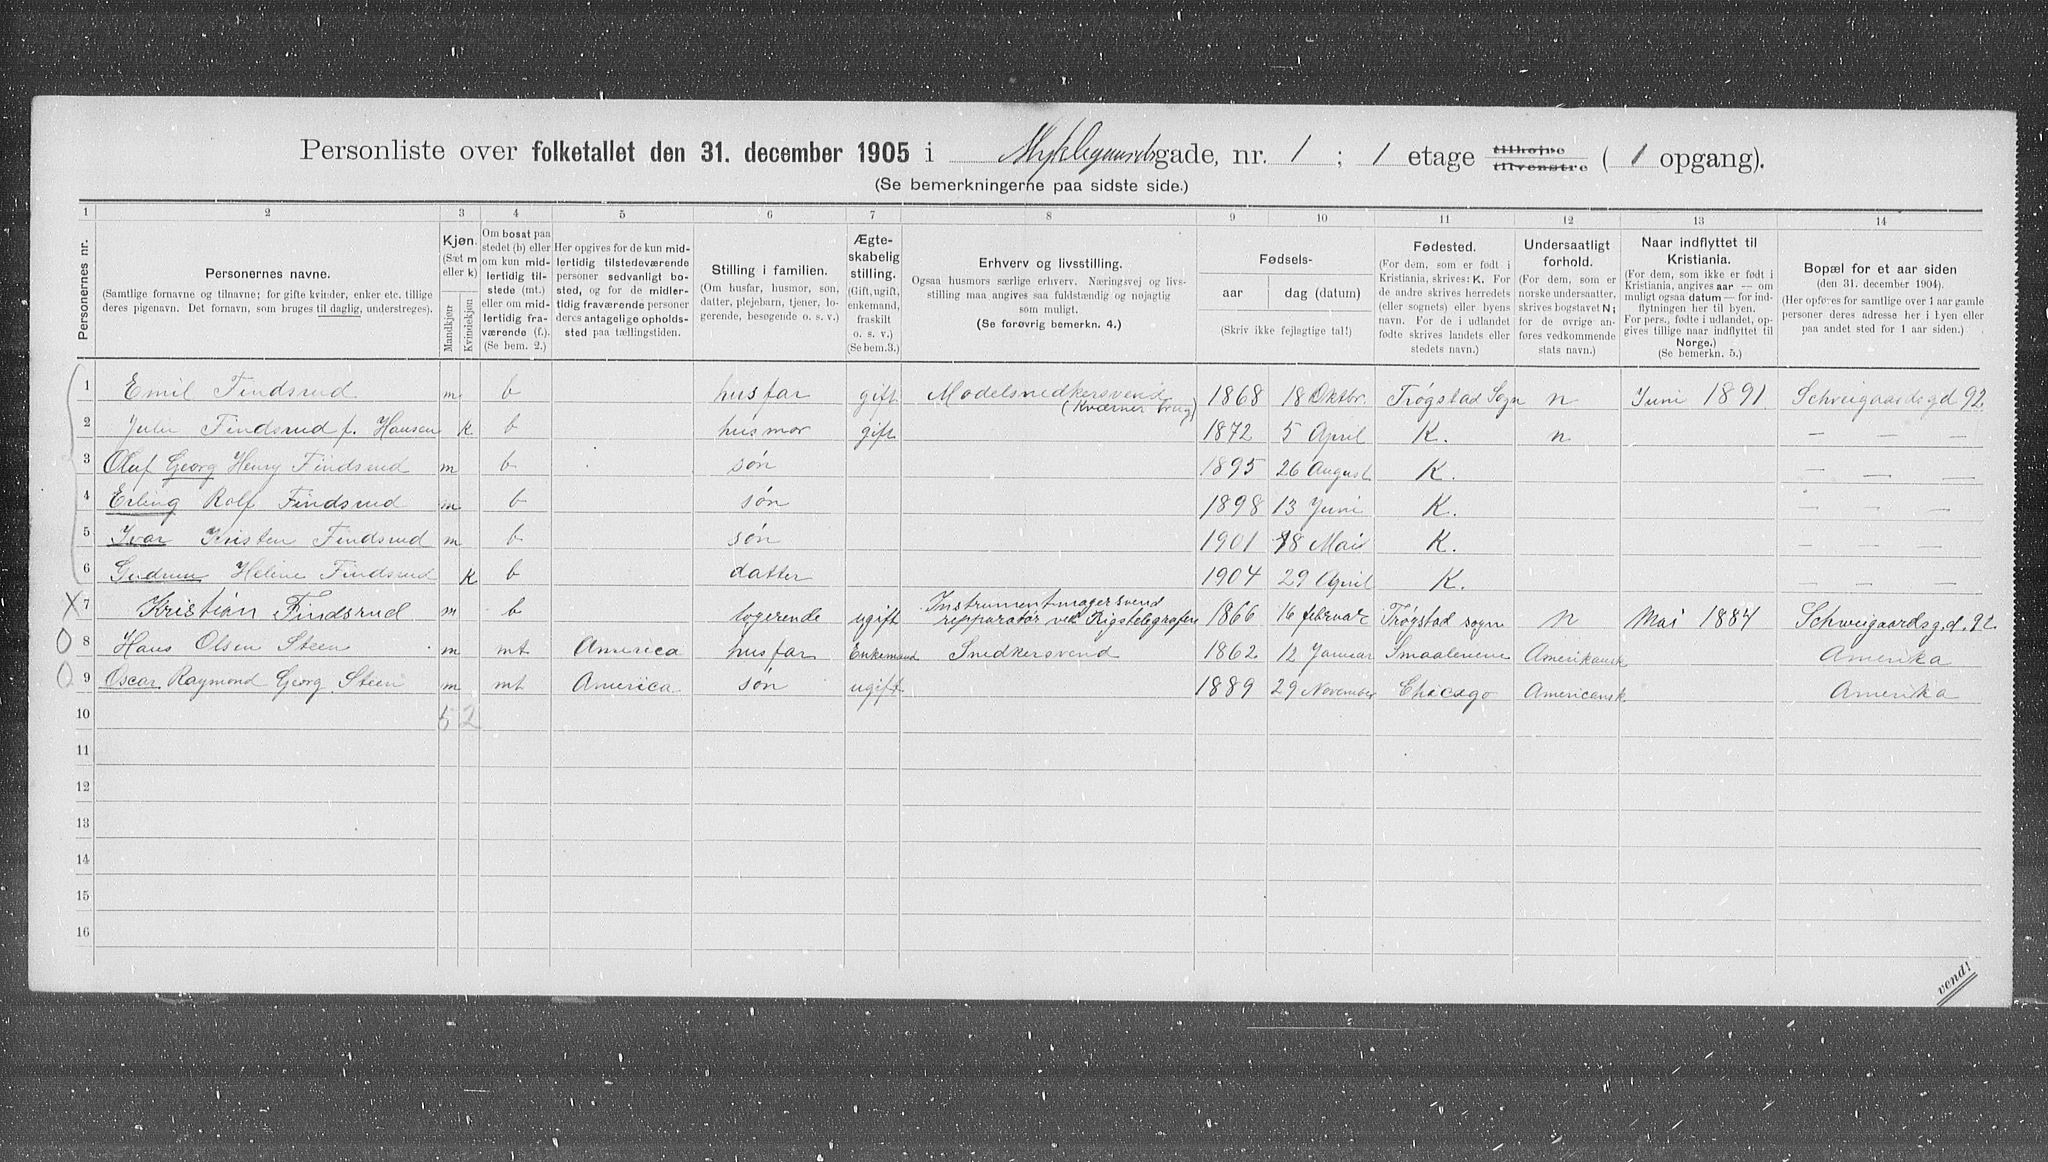 Personliste over folketallet den 31. december 1905 i Myklegaardsgade, nr. 1 ; 1 etage tilhøjre tilvenstre ( 1 opgang).
(Se bemerkningerne paa sidste side.)
1 2 3 4 5 6 7 8 9 10 11 12 13 14
Personernes nr.
Personernes navne.
(Samtlige fornavne og tilnavne; for gifte kvinder, enker etc. tillige
deres pigenavn. Det fornavn, som bruges til daglig, understreges).
Kjøn.
(Sæt m
eller k)
Mandkjøn
Kvindekjøn
Om bosat paa
stedet (b) eller
om kun mid-
lertidig til-
stede (mt.)
eller om mid-
lertidig fra-
værende (f.).
(Se bem. 2.)
Her opgives for de kun mid-
lertidig tilstedeværende
personer sedvanlig bo-
sted, og for de midler-
tidig fraværende personer
deres antagelige opholds-
sted paa tællingstiden.
Stilling i familien.
(Om husfar, husmor, søn,
datter, plejebarn, tjener, lo-
gerende, besøgende o. s. v.)
Ægte-
skabelig
stilling.
(Gift, ugift,
enkemand,
fraskilt
o. s. v.)
(Se bem.3.)
Erhverv og livsstilling.
Ogsaa husmors særlige erhverv. Næringsvej og livs-
stilling maa angives saa fuldstændig og nøjagtig
som muligt.
(Se forøvrig bemerkn. 4.)
Fødsels-
aar
dag (datum)
(Skriv ikke fejlagtige tal!)
Fødested.
(For dem, som er født i
Kristiania, skrives: K. For
de andre skrives herredets
(eller sognets) eller byens
navn. For de i udlandet
fødte skrives landets eller
stedets navn.)
Undersaatligt
forhold.
(For dem, som er
norske undersaatter,
skrives bogstavet N;
for de øvrige an-
føres vedkommende
stats navn.)
Naar indflyttet til
Kristiania.
(For dem, som ikke er født i
Kristiania, angives aar — om
muligt ogsaa datum — for ind-
flytningen her til byen.
For pers., fødte i udlandet, op-
gives tillige naar indflyttet til
Norge.)
(Se bemerkn. 5.)
Bopæl for et aar siden
(den 31. december 1904).
(Her opføres for samtlige over 1 aar gamle
personer deres adresse her i byen eller
paa andet sted for 1 aar siden.)
1 Emil Findsrud m b husfar gift Modelsnedkersvend (Kværner brug) 1868 18 Oktbr. Trøgstad Sogn n Juni 1891 Schveigaardsgd 92.
2 Julie Findsrud f. Hansen k b husmor gift 1872 5 April K. n — — —
3 Oluf Georg Henry Findsrud m b søn 1895 26 August K. — — —
4 Erling Rolf Findsrud m b søn 1898 13 Juni K. — — —
5 Ivar Kristen Findsrud m b søn 1901 18 Mai K. — — —
6 Gudrun Helene Findsrud k b datter 1904 29 April K. — — —
X 7 Kristian Findsrud m b logerende ugift Instrumentmagersvend repparatør ved Rigstelegrafen 1866 16 februar Trøgstad sogn n Mai 1884 Schweigaardsg.d. 92
0 8 Hans Olsen Steen m mt America husfar Enkemand Snedkersvend 1862 12 Januar Smaalenene Amerikansk Amerika
0 9 Oscar Raymond Georg Steen m mt America søn ugift 1889 29 November Chicago Americansk Amerika
10 5 2
11
12
13
14
15
16
vend!